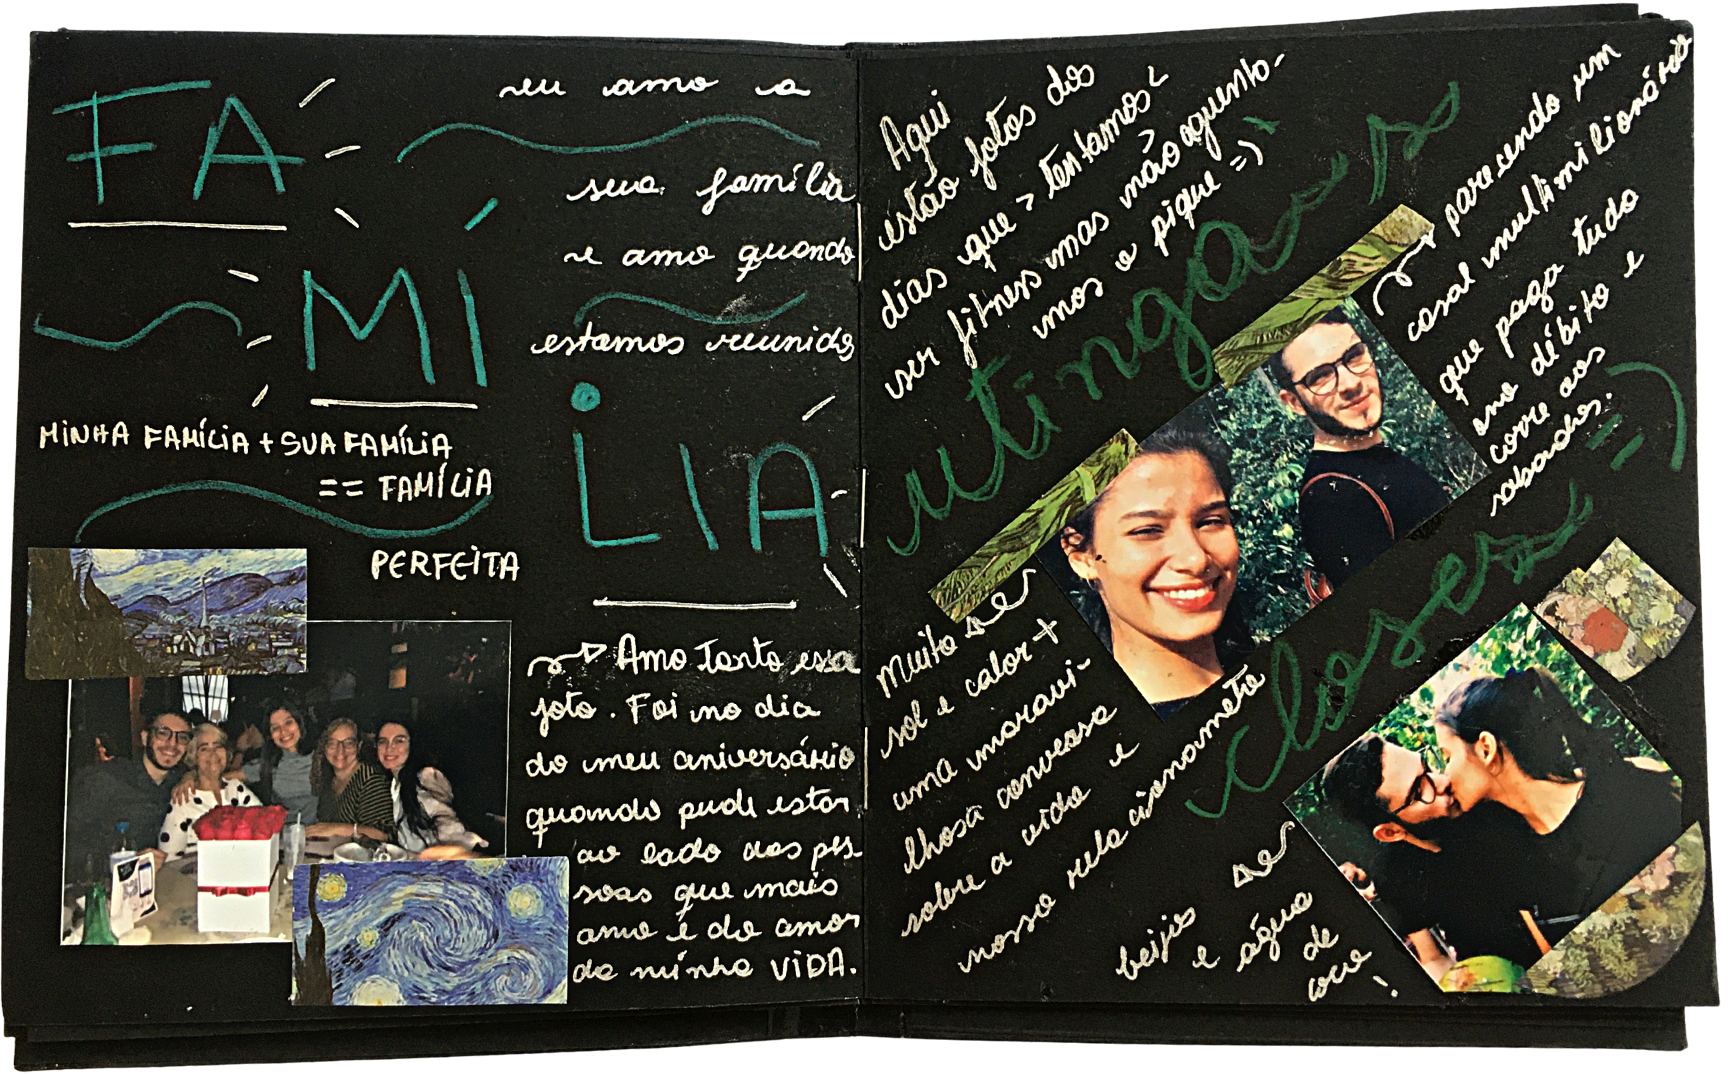 FA
MÍ
LIA
eu amo a
sua família
e amo quando
estamos reunidos
MINHA FAMÍLIA + SUA FAMÍLIA
== FAMÍLIA
PERFEITA
Amo Tanto essa
foto. Foi no dia
do meu aniversário
quando pude estar
ao lado das pes
soas que mais
amo e do amor
da minha VIDA.
Aqui
estão fotos dos
dias que > tentamos <
ser fitness mas não aguenta-
mos o pique =)
utinga's
closer
parecendo um
casal multimilionário
que paga tudo
no débito e
corre aos
sábados.
=)
Muito
sol e calor +
uma maravi-
lhosa conversa
sobre a vida e
nosso relacionamento
beijos
e água
de
coco!